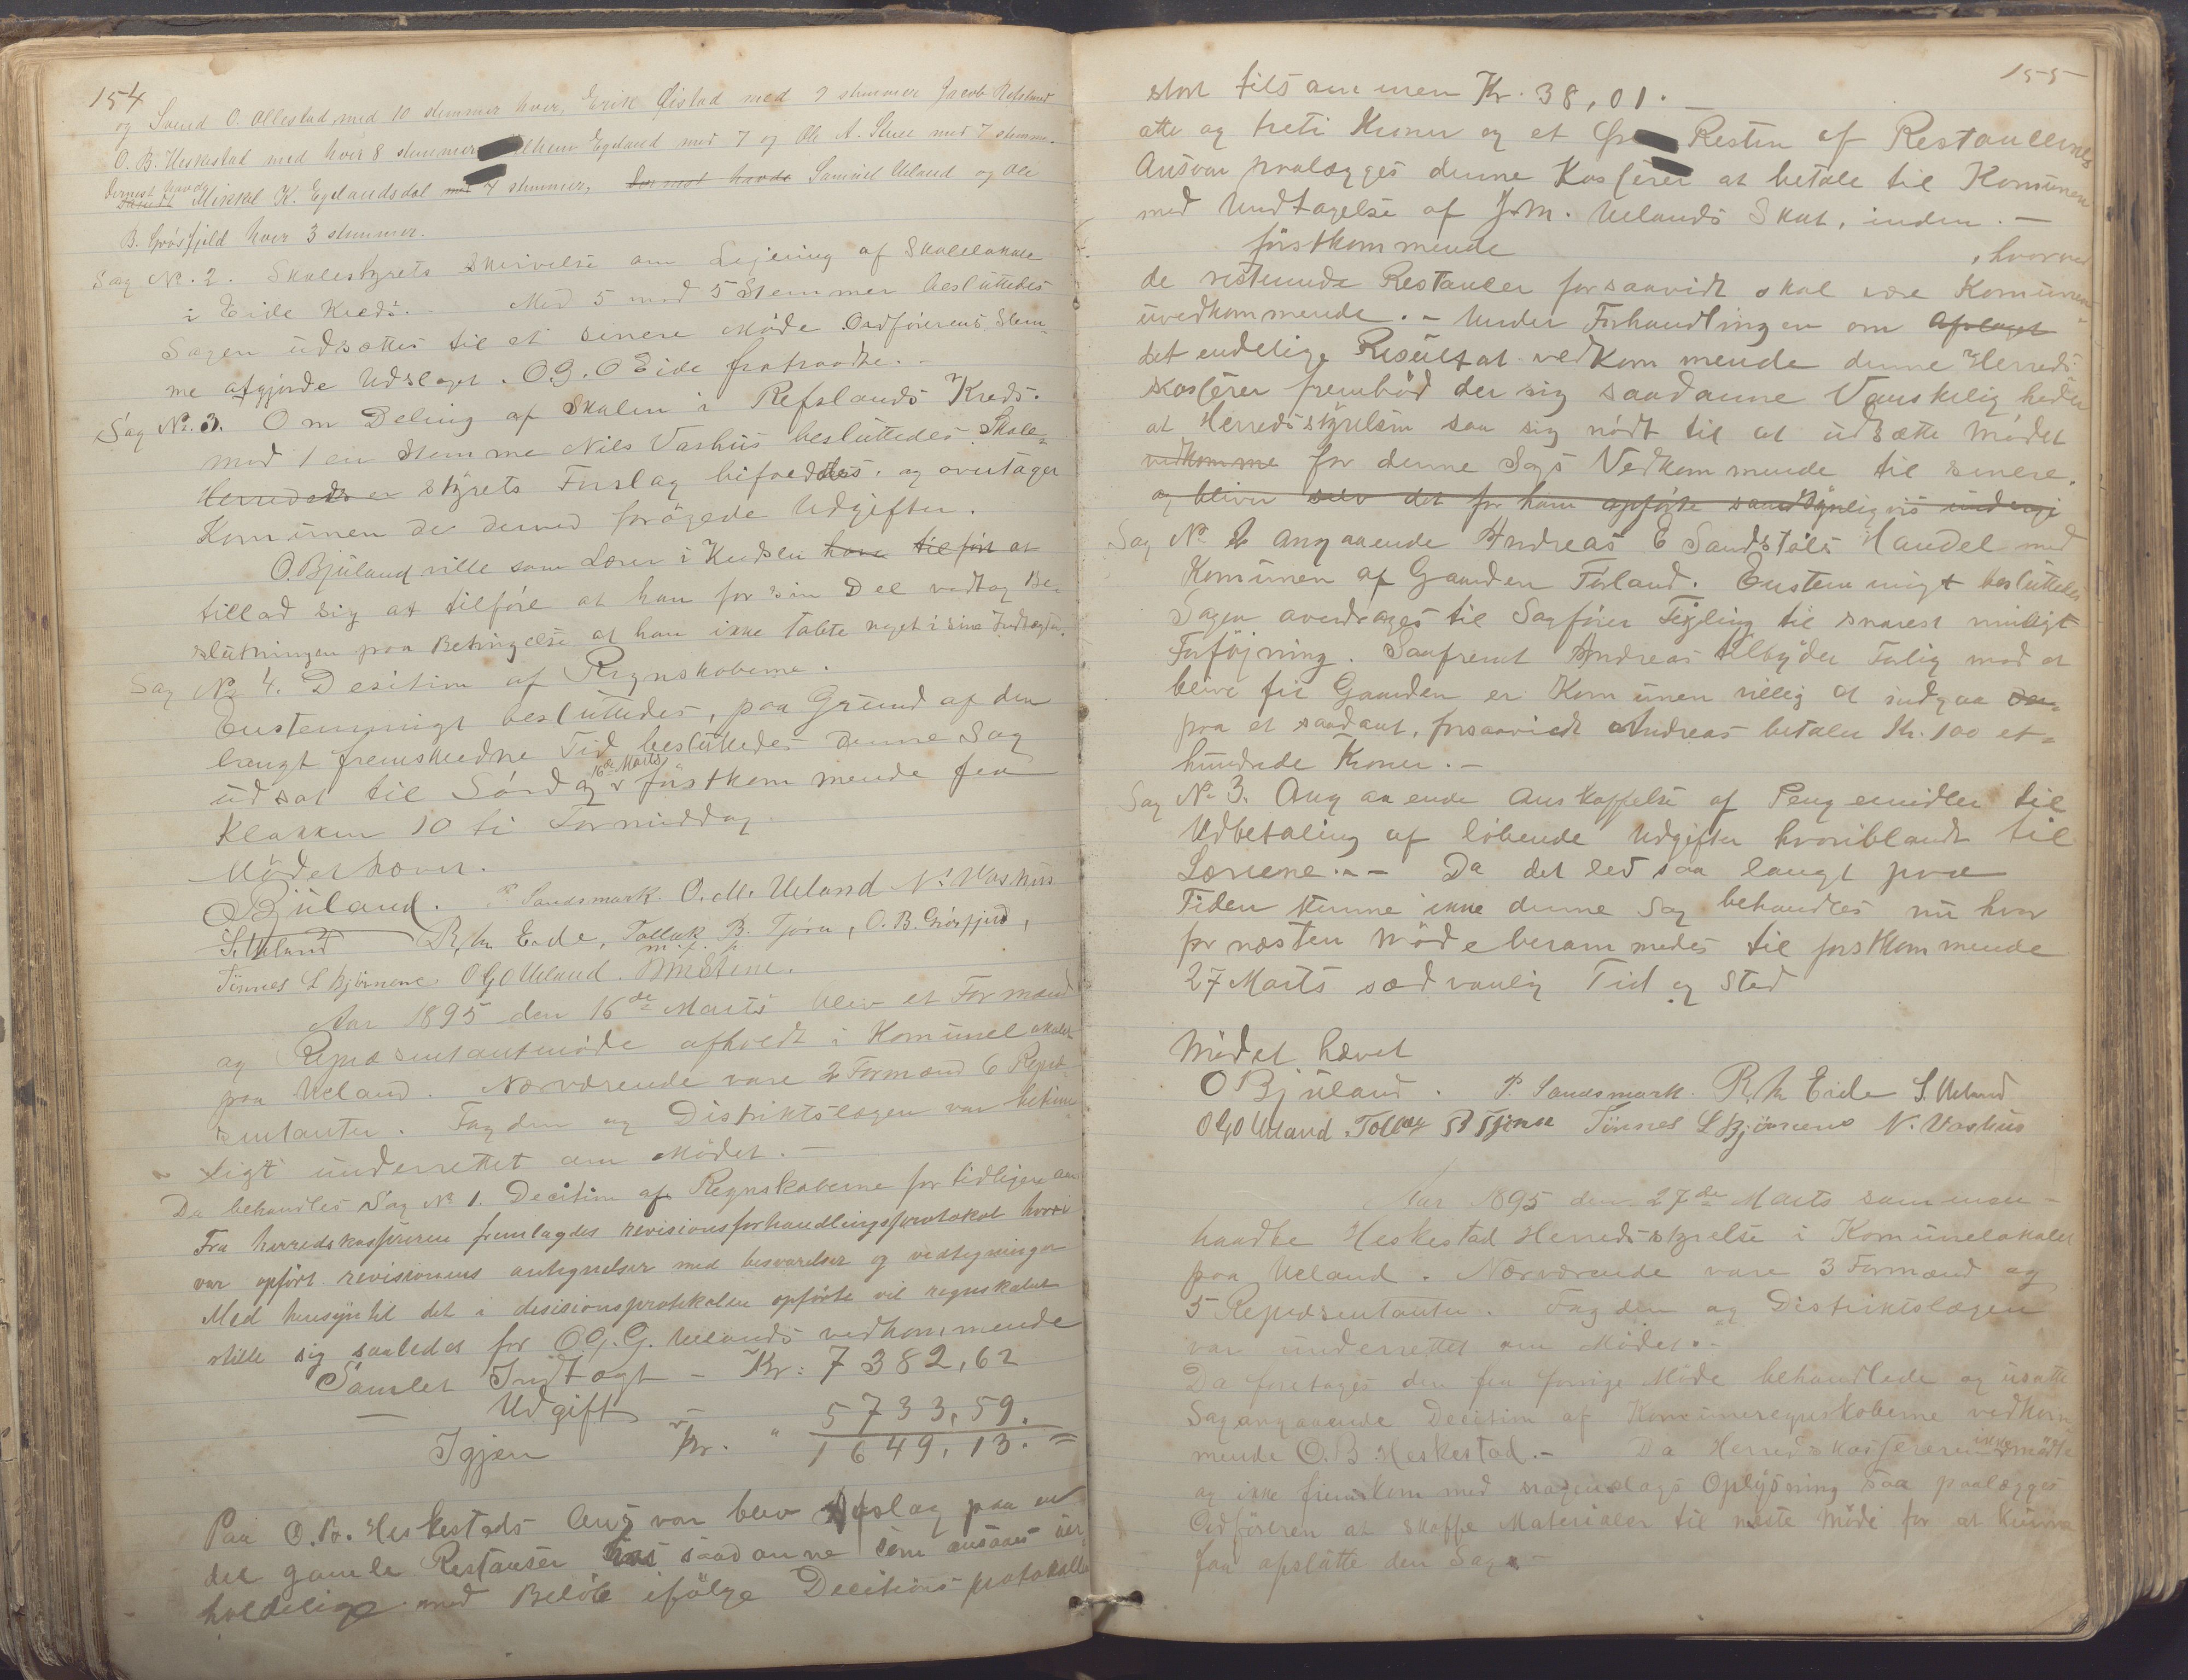 154
og Svend O. Ollestad med 10 stemmer hver, Erik Øistad med 9 stemmer Jacob Refsland
O. B. Heskestad med hver 8 stemmer Egeland med 7 og Ole A. med 7 stemmer.
dernest havde Mikkel K. Egelandsdal med 4 stemmer, dernest havde Samuel Ueland og Ole
B. Grøsfjeld hver 3 stemmer.
Sag No. 2. Skolestyrets Skrivelse om Lejening af Skolelokale
i Eide Kreds. Med 5 mod 5 Stemmer besluttedes
Sagen udsættes til et senere Møde Ordførerens Stem-
me afgjorde Udslaget. O. G. O Eide fratraadte. -
Sag No. 3. Om Deling af Skolen i Refslands Kreds.
mod 1 en Stemme Nils Vashus besluttedes Skole-
styrets Forslag bifoldes. og overtager
Komunen de derved forøgede Udgifter.
O. Bjuland ville som Lærer i Kredsen have tilført at
tillod sig at tilføre at han for sin Del vedtog Be-
slutningen paa Betingelse at han ikke tabte noget i sine Indtægter.
Sag No 4. Desition af Regnskoberne.
Enstemmigt besluttedes, paa Grund af den
langt fremskredne Tid besluttedes denne Sag
udsat til Lørdag 16de Marts førstkommende fra
Klokken 10 ti Formiddag.
Mødet hævet.
O Bjuland. P. Sandsmark. O. M. Ueland N. Vashus
S. Ueland R. M Eide, Tollak B. Tjørn, O. B. Grøsfjeld,
m. f. p.
Tønnes L Bjørnene. O G O Ueland.
Aar 1895 den 16de Marts blev et Formænd
og Repræsentantmøde afholdt i Komunelokalet
paa Ueland. Nærværende vare 2 Formænd 6 Repræ-
sentanter. Fogden og Distriktslægen var betim-
ligt underrettet om Mødet. -
Da behandles Sag No 1. Decition af Regnskaberne for tidligere aar.
Fra herredskasserere fremlagdes revisionsforhandlingsprotokol hvori
var opført revisionens antegnelser med besvarelser og vedtegninger
Med hensyn til det i desisionsprotokolen opførte vil regnskabet
stille sig saaledes for O. G. G. Uelands vedkommende
Samlet Indtægt - Kr: 7382,62
— Udgift - 5733,59.
Igjen Kr. " 1649,13. =
Paa O. B. Heskestads Ansvar blev Afslag paa en
del gamle Restanser saadanne som ansaaes uer-
holdelige med Beløb ifølge Decitions protokollen
155
stort tilsammen Kr. 38,01. -
otte og treti Kroner og et Øre Resten af Restancernes
Ansvar paalægges denne Kasserer at betale til Komunen
med Undtagelse af J. M. Uelands Skat, inden. -
førstkommende , hvorved
de resterende Restancer forsaavidt skal være Komunen
uvedkommende. - Under Forhandlingen om Afslaget
det endelige Resultat vedkommende denne Herreds-
kasserer frembød der sig saadanne Vanskeligheder
at Herredsstyrelsen saa sig nødt til at udsætte Mødet
vedkomme for denne Sags Vedkommende til senere.
og bliver selv det for ham opførte sandsynligvis
Sag No 2 angaaende Andreas E Sandstøls Handel med
Komunen af Gaarden Tørland. Enstemmigt besluttedes
Sagen overdrages til Sagfører Tejgling til snarest muligt
Forføjning. Saafremt Andreas tilbyder Forlig mod at
blive fri Gaarden er Komunen villig at indgaa
paa et saadant, forsaavidt Andreas betaler Kr. 100 et-
hundrede Kroner. -
Sag No 3. Angaaende Anskaffelse af Pengemidler til
Udbetaling af løbende Udgifter hvoriblandt til
Lærerne. - Da det led saa langt paa
Tiden kunne ikke denne Sag behandles nu hvor
for næsten Møde berammedes til førstkommende
27 Marts sædvanlig Tid og Sted
Mødet hævet
O Bjuland. P. Sandsmark. R. M Eide S. Ueland
O G O Ueland. Tollak B Tjørn Tønnes L Bjørnene N. Vashus
Aar 1895 den 27de Marts sammen-
traadte Heskestad Herredsstyrelse i Komunelokalet
paa Ueland. Nærværende vare 3 Formænd og
5 Repræsentanter. Fogden og Distriktslægen
var underrettet om Mødet. -
Da foretages den fra forrige Møde behandlede og usatte
Sag angaaende Decition af Komuneregnskoberne vedkom
mende O. B Heskestad. - Da Herredskassereren ikke mødte
og ikke fremkom med nogenslags Oplysning saa paalægges
Ordføreren at skaffe Materialer til næste Møde for at kunne
faa afslutte den Sag. -